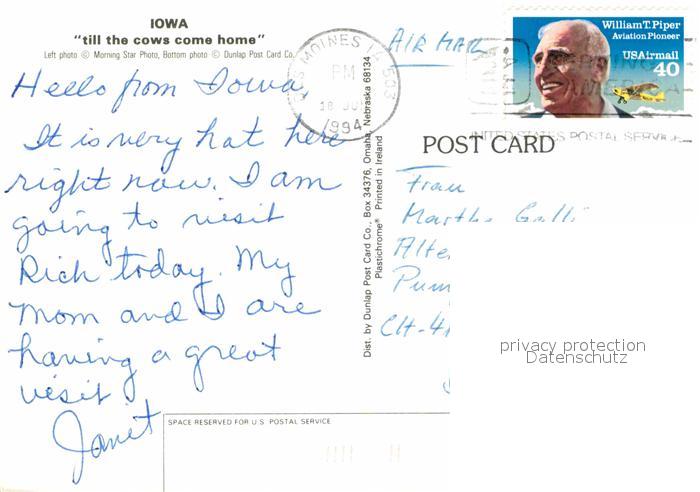 IOWA
"till the cows come home"
Left photo © Morning Star Photo, Bottom photo © Dunlap Post Card Co.
Hello from Iowa,
It is very hot here
right now. I am
going to visit
Rich today. My
Mom and I are
having a great
visit
Janet
DES MOINES IA 503
PM
18 JU
1994
AIR MAIL
William T. Piper
Aviation Pioneer
USAirmail
40
AMERICA
UNITED STATES POSTAL SERVICE
POST CARD
Frau
Martha Galli
Alte
Pum
CH-41
privacy protection
Datenschutz
Dist. by Dunlap Post Card Co., Box 34376, Omaha, Nebraska 68134
Plastichrome® Printed in Ireland
SPACE RESERVED FOR U.S. POSTAL SERVICE